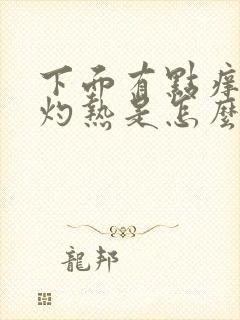 下面有點痒
灼熱是怎麼
龍邦